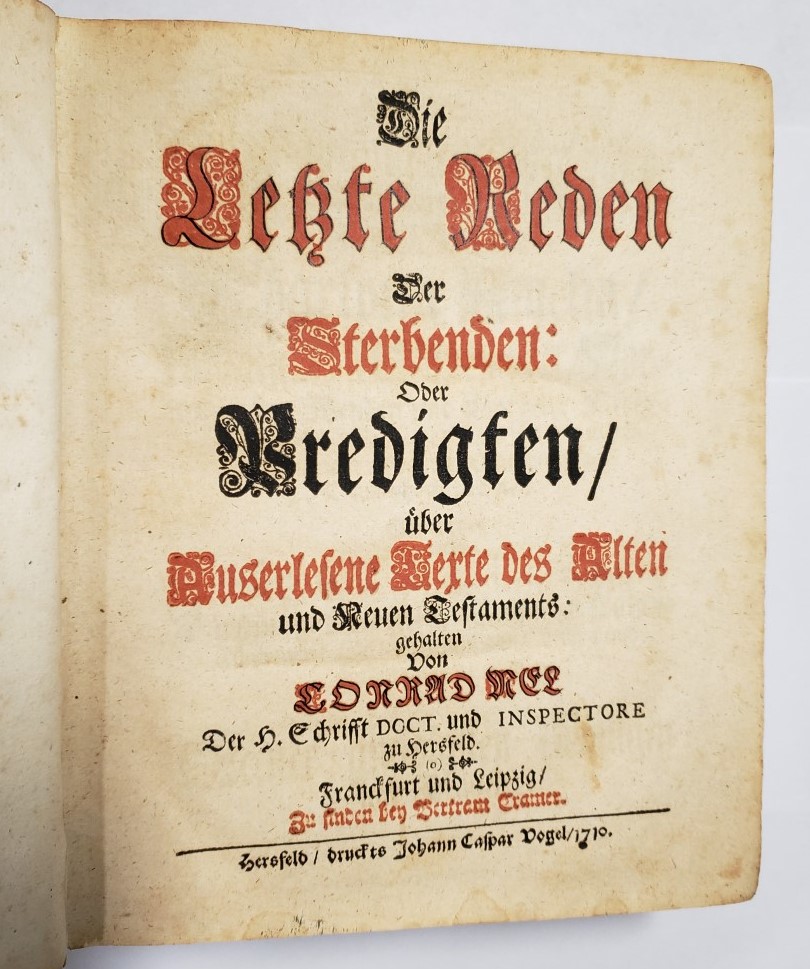 Die
Letzte Reden
Der
Sterbenden:
Oder
Predigten/
über
Auserlesene Texte des Alten
und Neuen Testaments:
gehalten
Von
CONRAD MEL
Der H. Schrifft DOCT. und INSPECTORE
zu Hersfeld.
(o)
Franckfurt und Leipzig/
Zu finden bey Bertram Cramer.
Hersfeld / druckts Johann Caspar Vogel/1710.